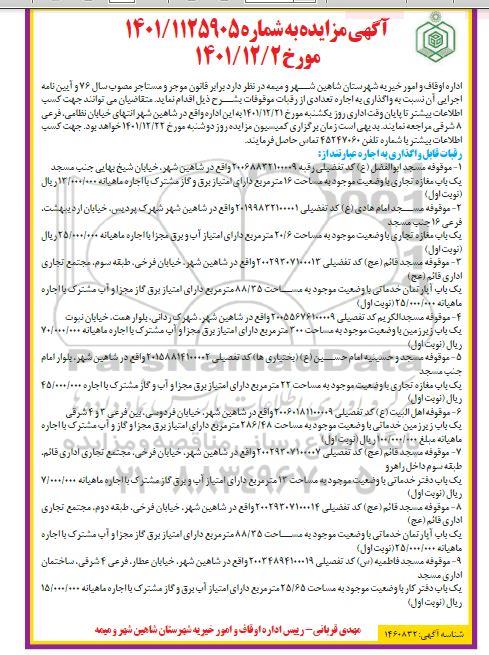 آگهی مزایده به شماره ۱۴۰۱/۱۱۲۵۹۰۵
مورخ ۱۴۰۱/۱۲/۲
اداره اوقاف و امور خیریه شهرستان شاهین شهر و میمه در نظر دارد برابر قانون موجر و مستاجر مصوب سال ۷۶ و آیین نامه
اجرایی آن نسبت به واگذاری به اجاره تعدادی از رقبات موقوفات بشرح ذیل اقدام نماید. متقاضیان می توانند جهت کسب
اطلاعات بیشتر تا پایان وقت اداری روز یکشنبه مورخ ۱۴۰۱/۱۲/۲۱ به اداره اوقاف واقع در شاهین شهر انتهای خیابان نظامی، فرعی
۸ شرقی مراجعه نمایند. بدیهی است زمان برگزاری کمیسیون مزایده روز دوشنبه مورخ ۱۴۰۱/۱۲/۲۲ خواهد بود. جهت کسب
اطلاعات بیشتر با شماره تلفن ۴۵۲۴۷۰۶۰ تماس حاصل فرمایند.
رقبات قابل واگذاری به اجاره عبارتند از:
۱- موقوفه مسجد ابوالفضل (ع) کد تفصیلی رقبه ۲۰۰۶۸۸۳۲۱۰۰۰۰۹ واقع در شاهین شهر، خیابان شیخ بهایی جنب مسجد
یک باب مغازه تجاری با وضعیت موجود به مساحت ۱۶ متر مربع دارای امتیاز برق و گاز مشترک با اجاره ماهیانه ۱۳/۰۰۰/۰۰۰ ریال
(نوبت اول)
۲- موقوفه مسجد امام هادی (ع) کد تفصیلی ۲۰۱۹۹۸۳۲۱۰۰۰۰۱ واقع در شاهین شهر شهرک پردیس، خیابان اردیبهشت،
فرعی ۱۶ جنب مسجد
یک باب مغازه تجاری با وضعیت موجود به مساحت ۲۰/۶ متر مربع دارای امتیاز آب و برق مجزا با اجاره ماهیانه ۲۵/۰۰۰/۰۰۰ ریال
(نوبت اول)
۳- موقوفه مسجد قائم (عج) کد تفصیلی ۲۰۰۲۹۳۰۷۱۰۰۰۱۳ واقع در شاهین شهر، خیابان فرخی، طبقه سوم، مجتمع تجاری
اداری قائم (عج)
یک باب آپارتمان خدماتی با وضعیت موجود به مساحت ۸۸/۳۵ متر مربع دارای امتیاز برق گاز مجزا و آب مشترک با اجاره
ماهیانه ۲۵/۰۰۰/۰۰۰ (نوبت اول)
۴- موقوفه مسجدالکریم کد تفصیلی ۲۰۰۵۵۶۷۶۱۰۰۰۰۹ واقع در شاهین شهر، شهرک ردانی، بلوار همت، خیابان نبوت
یک باب زیرزمین با وضعیت موجود به مساحت ۳۰۰ متر مربع دارای امتیاز برق مجزا و آب مشترک با اجاره ماهیانه ۷۰/۰۰۰/۰۰۰
ریال (نوبت اول)
۵- موقوفه مسجد و حسینیه امام حسین (ع) (بختیاری ها) کد تفصیلی ۲۰۱۵۸۸۱۴۱۰۰۰۰۲ واقع در شاهین شهر، بلوار امام
جنب مسجد
یک باب مغازه تجاری با وضعیت موجود به مساحت ۲۲ متر مربع دارای امتیاز برق مجزا و آب و گاز مشترک با اجاره ۴۵/۰۰۰/۰۰۰
ریال (نوبت اول)
۶- موقوفه اهل البیت (ع) کد تفصیلی ۲۰۰۶۰۱۸۱۱۰۰۰۰۹ واقع در شاهین شهر، خیابان فردوسی، بین فرعی ۳ و ۴ شرقی
یک باب زیرزمین خدماتی با وضعیت موجود به مساحت ۲۸۶/۴۸ متر مربع دارای امتیاز برق مجزا و گاز و آب مشترک با اجاره
ماهیانه مبلغ ۱۰۰/۰۰۰/۰۰۰ ریال (نوبت اول)
۷- موقوفه مسجد قائم (عج) کد تفصیلی ۲۰۰۲۹۳۰۷۱۰۰۰۰۷ واقع در شاهین شهر، خیابان فرخی، مجتمع تجاری اداری قائم،
طبقه سوم داخل راهرو
یک باب دفتر خدماتی با وضعیت موجود به مساحت ۱۳ متر مربع دارای امتیاز آب و برق گاز مشترک با اجاره ماهیانه ۷/۰۰۰/۰۰۰
ریال (نوبت اول)
۸- موقوفه مسجد قائم (عج) کد تفصیلی ۲۰۰۲۹۳۰۷۱۰۰۰۱۴ واقع در شاهین شهر، خیابان فرخی، طبقه دوم، مجتمع تجاری
اداری قائم (عج)
یک باب آپارتمان خدماتی با وضعیت موجود به مساحت ۸۸/۳۵ متر مربع دارای امتیاز برق گاز مجزا و آب مشترک با اجاره
ماهیانه ۲۵/۰۰۰/۰۰۰ (نوبت اول)
۹- موقوفه مسجد فاطمیه (س) کد تفصیلی ۲۰۰۳۴۸۹۴۱۰۰۰۱۹ واقع در شاهین شهر، خیابان عطار، فرعی ۴ شرقی، ساختمان
اداری مسجد
یک باب دفتر کار با وضعیت موجود به مساحت ۲۵/۶۵ متر مربع دارای امتیاز آب برق و گاز مشترک با اجاره ماهیانه ۱۵/۰۰۰/۰۰۰
ریال (نوبت اول)
مهدی قربانی – رییس اداره اوقاف و امور خیریه شهرستان شاهین شهر و میمه
شناسه آگهی: ۱۴۶۰۸۳۲
ParsNamadData
۰۲۱-۸۸۳۴۹۶۷۰-۵